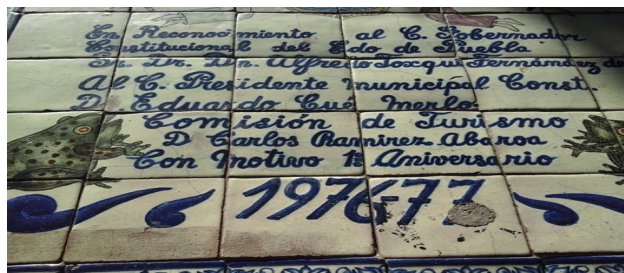 En Reconocimiento al C. Gobernador
Constitucional del Edo de Puebla
Sr. Dr. Dn. Alfredo Toxqui Fernández de
Al C. Presidente municipal Const.
D. Eduardo Cué merlo.
Comisión de Turismo
D Carlos Ramirez Abaroa
Con motivo 1er Aniversario
1976-77